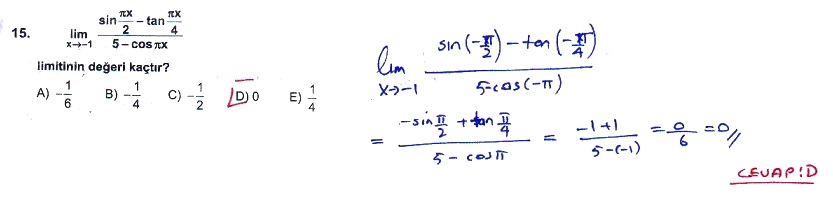 15. lim x→-1 (sin πx/2 - tan πx/4) / (5 - cos πx)
limitinin değeri kaçtır?
A) -1/6 B) -1/4 C) -1/2 D) 0 E) 1/4
lim x→-1 (sin(-π/2) - tan(-π/4)) / (5-cos(-π))
= (-sin π/2 + tan π/4) / (5 - cosπ) = (-1+1) / (5-(-1)) = 0/6 = 0//
CEVAP: D